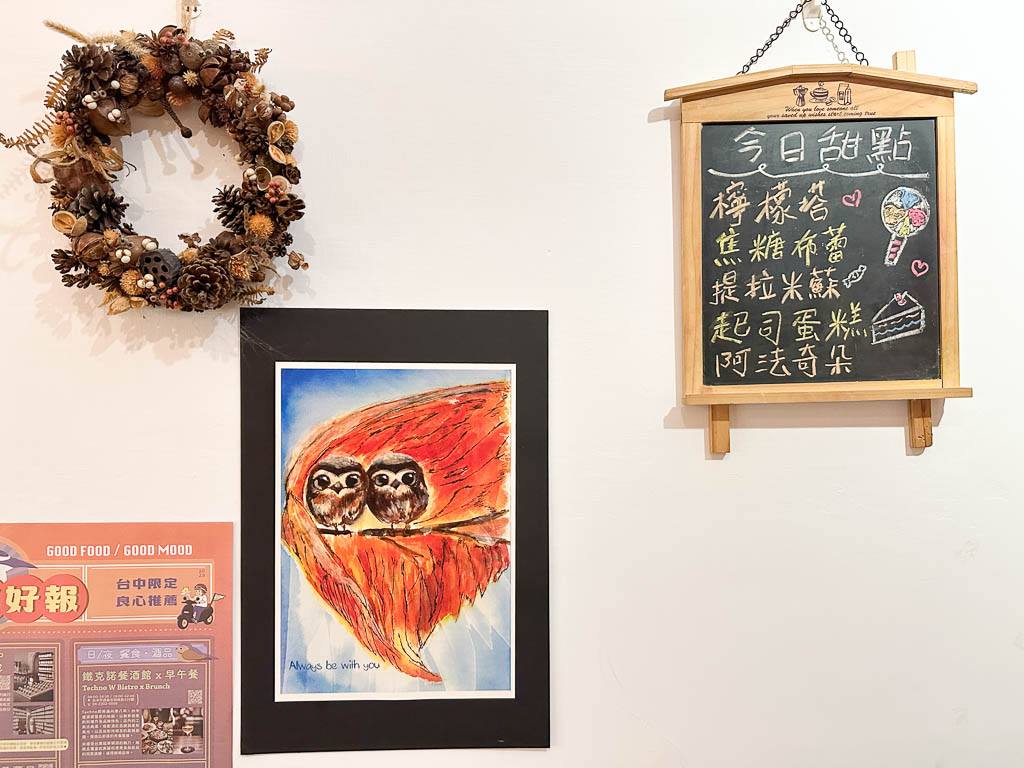 When you love someone all
your saved up wishes start coming true
今日甜點
檸檬塔
焦糖布蕾
提拉米蘇
起司蛋糕
阿法奇朵
Always be with you
GOOD FOOD / GOOD MOOD
好報
台中限定
良心推薦
日/夜 餐食・酒品
鐵克諾餐酒館 x 早午餐
Techno W Bistro x Brunch